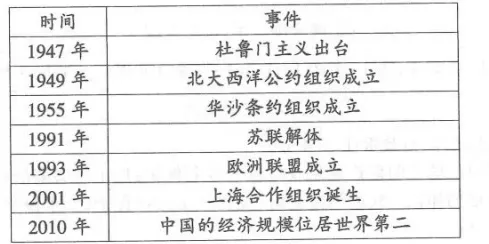 时间 事件
1947 年 杜鲁门主义出台
1949 年 北大西洋公约组织成立
1955 年 华沙条约组织成立
1991 年 苏联解体
1993 年 欧洲联盟成立
2001 年 上海合作组织诞生
2010 年 中国的经济规模位居世界第二